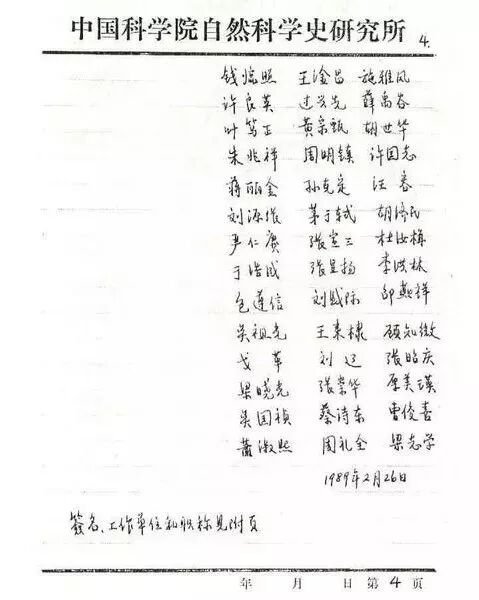 中国科学院自然科学史研究所 4.
钱临照 王淦昌 施雅风
许良英 过兴先 薛禹谷
叶笃正 黄宗甄 胡世华
朱兆祥 周明镇 许国志
蒋丽金 孙克定 汪容
刘源张 茅于轼 胡济民
严仁赓 张宣三 杜汝楫
于浩成 张显扬 李洪林
包遵信 刘 邵燕祥
吴祖光 王来棣 顾知微
戈革 刘辽 张昭庆
梁晓光 张崇华 厚美瑛
吴国祯 蔡诗东 曹俊喜
萧淑熙 周礼全 梁志学
1989年2月26日
签名、工作单位和职称见附页
年 月 日 第4页